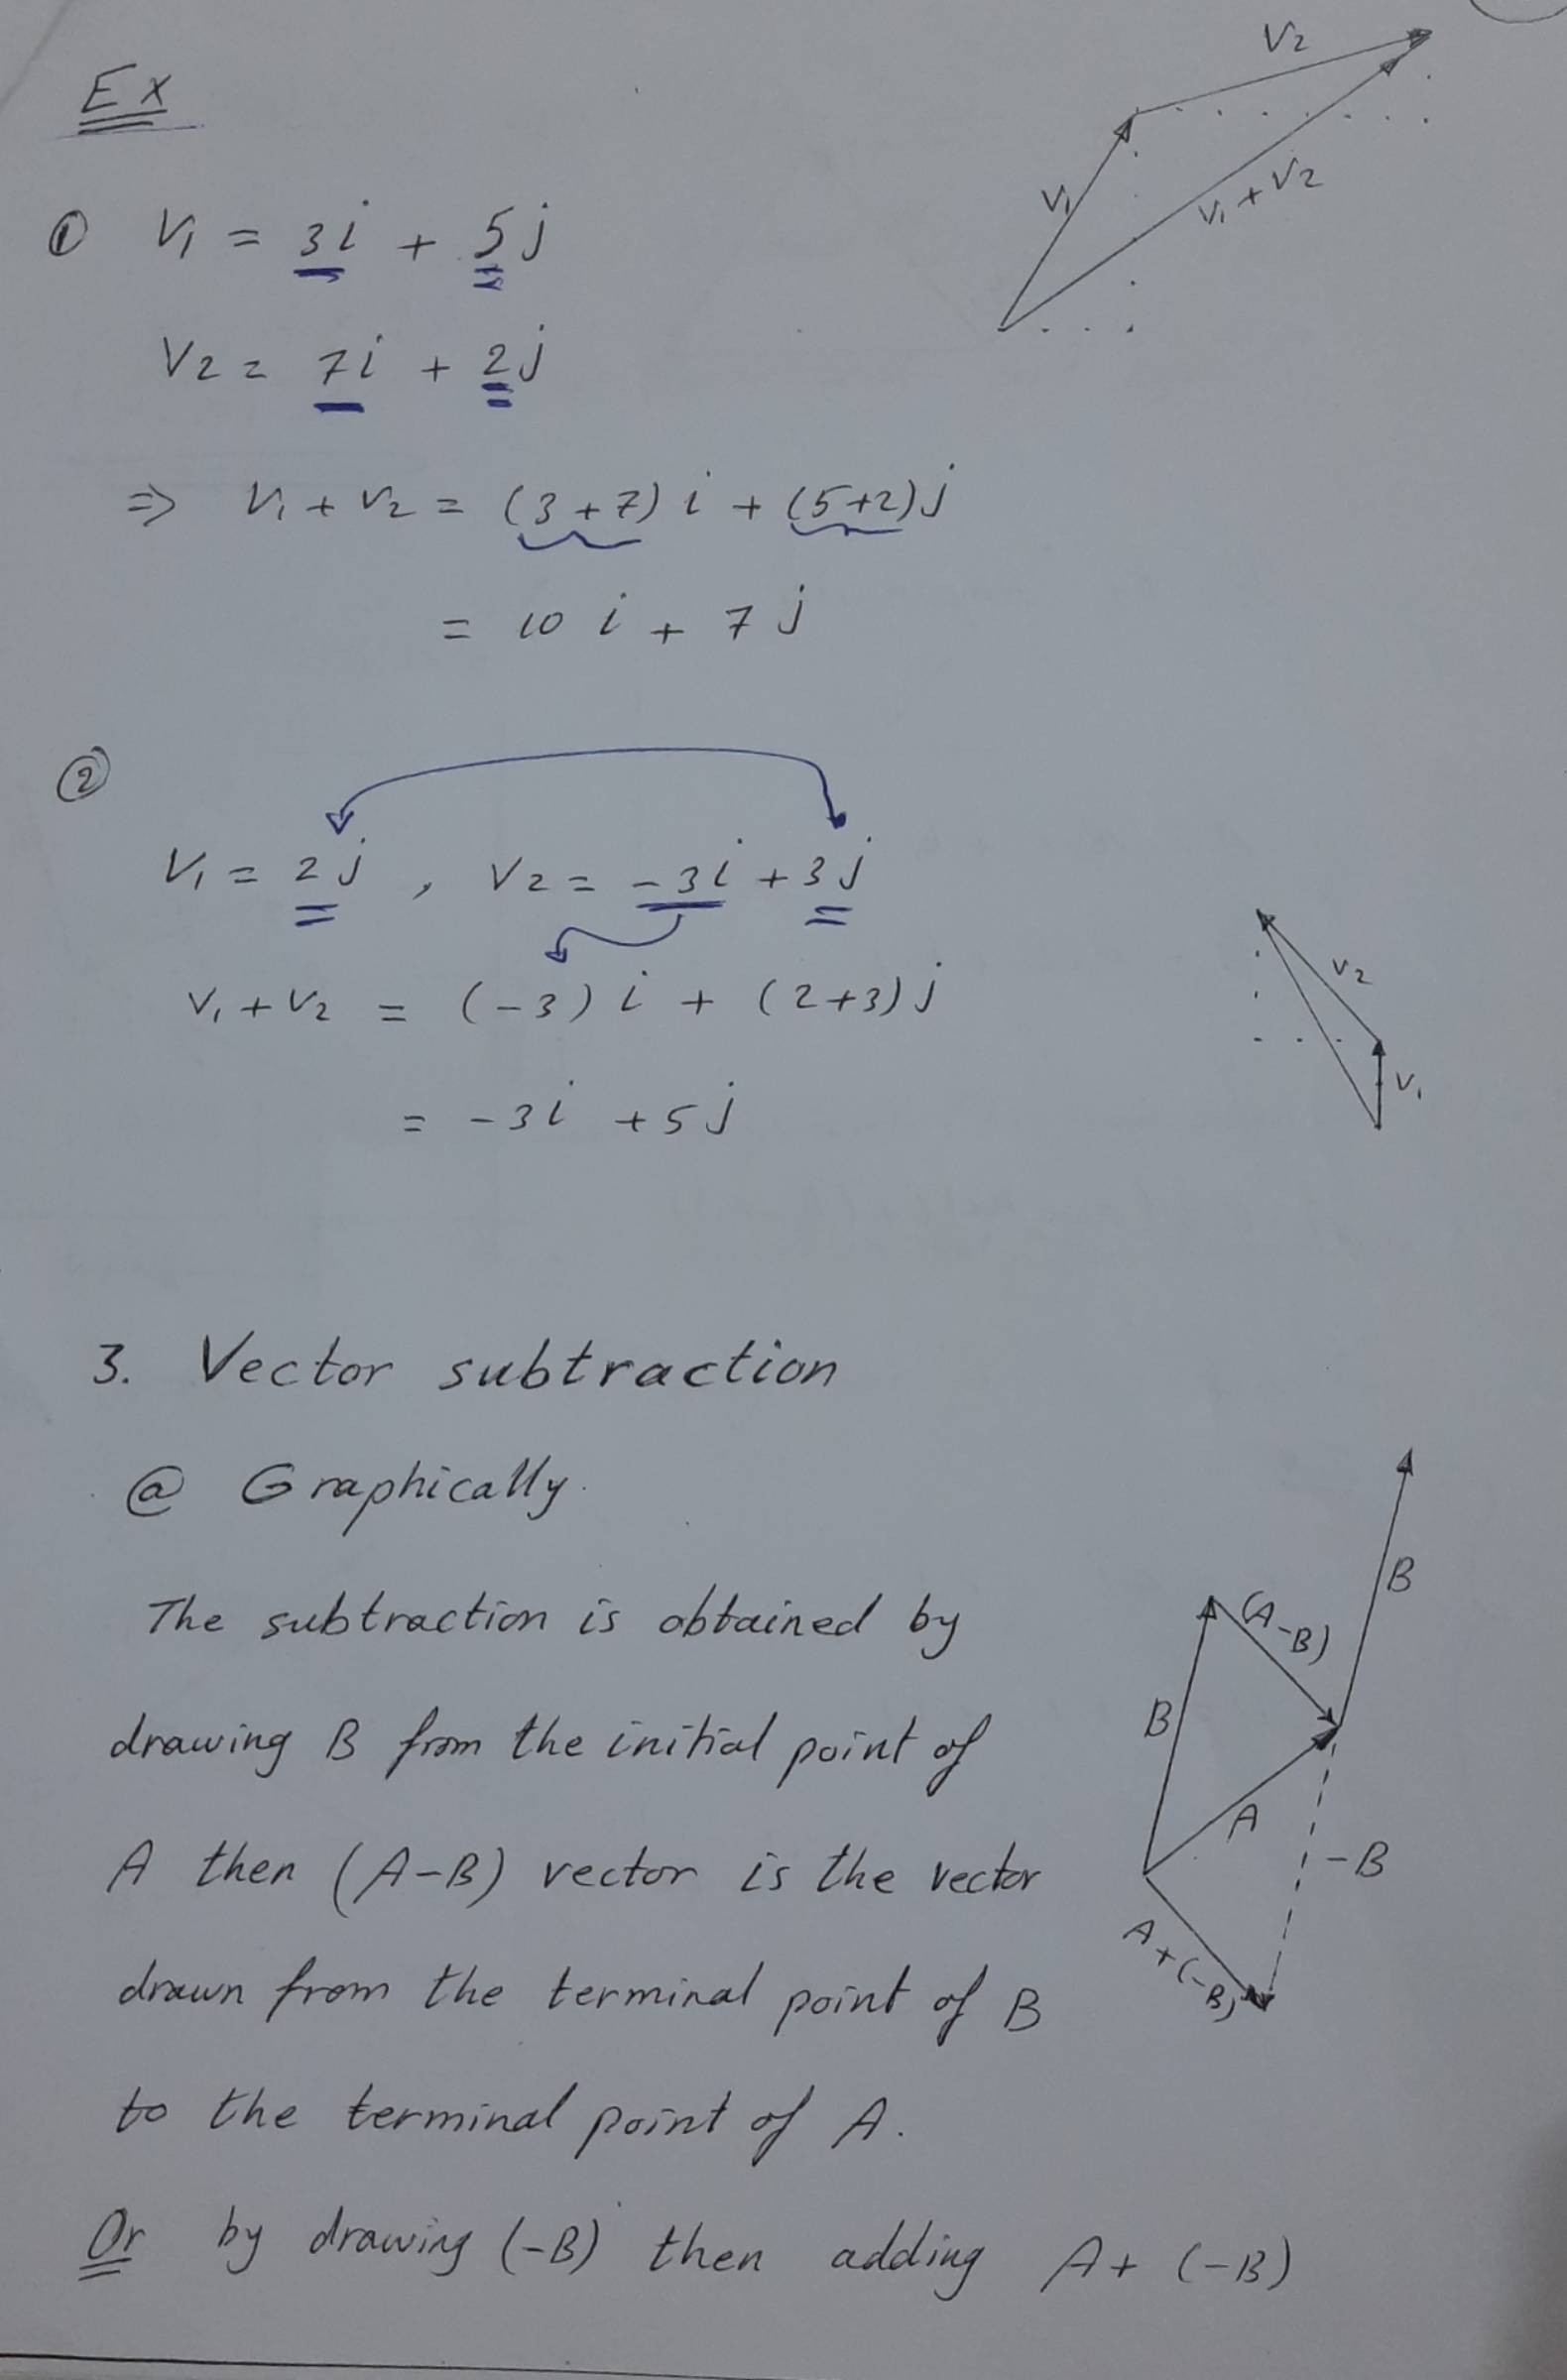 Ex
V2
V1
V1 + V2
① V1 = 3i + 5j
V2 = 7i + 2j
⇒ V1 + V2 = (3+7) i + (5+2) j
= 10 i + 7 j
②
V1 = 2j , V2 = -3i + 3j
V1 + V2 = (-3) i + (2+3) j
= -3i + 5j
V2
V1
3. Vector subtraction
@ Graphically.
The subtraction is obtained by
drawing B from the initial point of
A then (A-B) vector is the vector
drawn from the terminal point of B
to the terminal point of A.
Or by drawing (-B) then adding A + (-B)
B
(A-B)
B
A
-B
A+(-B)